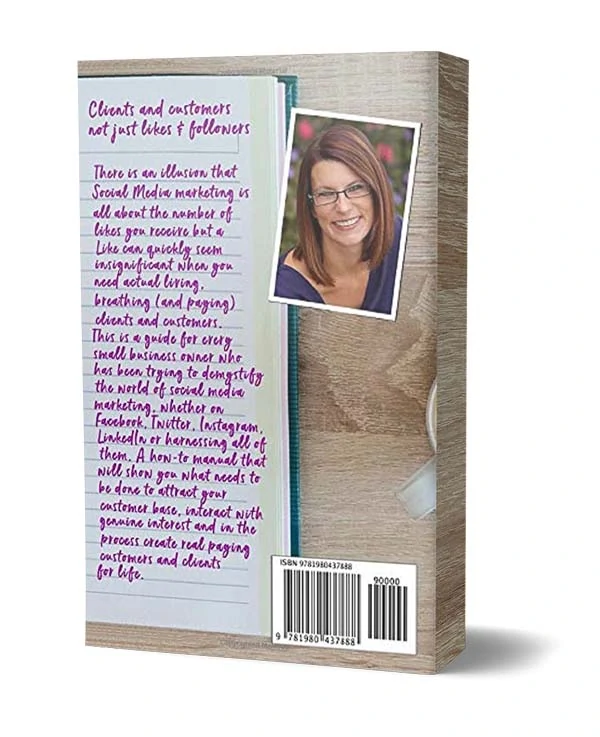 Clients and customers
not just likes & followers
There is an illusion that
Social Media marketing is
all about the number of
likes you receive but a
Like can quickly seem
insignificant when you
need actual living,
breathing (and paying)
clients and customers.
This is a guide for every
small business owner who
has been trying to demystify
the world of social media
marketing, whether on
Facebook, Twitter, Instagram,
LinkedIn or harnessing all of
them. A how-to manual that
will show you what needs to
be done to attract your
customer base, interact with
genuine interest and in the
process create real paying
customers and clients
for life.
ISBN 9781980437888
90000
9 781980 437888